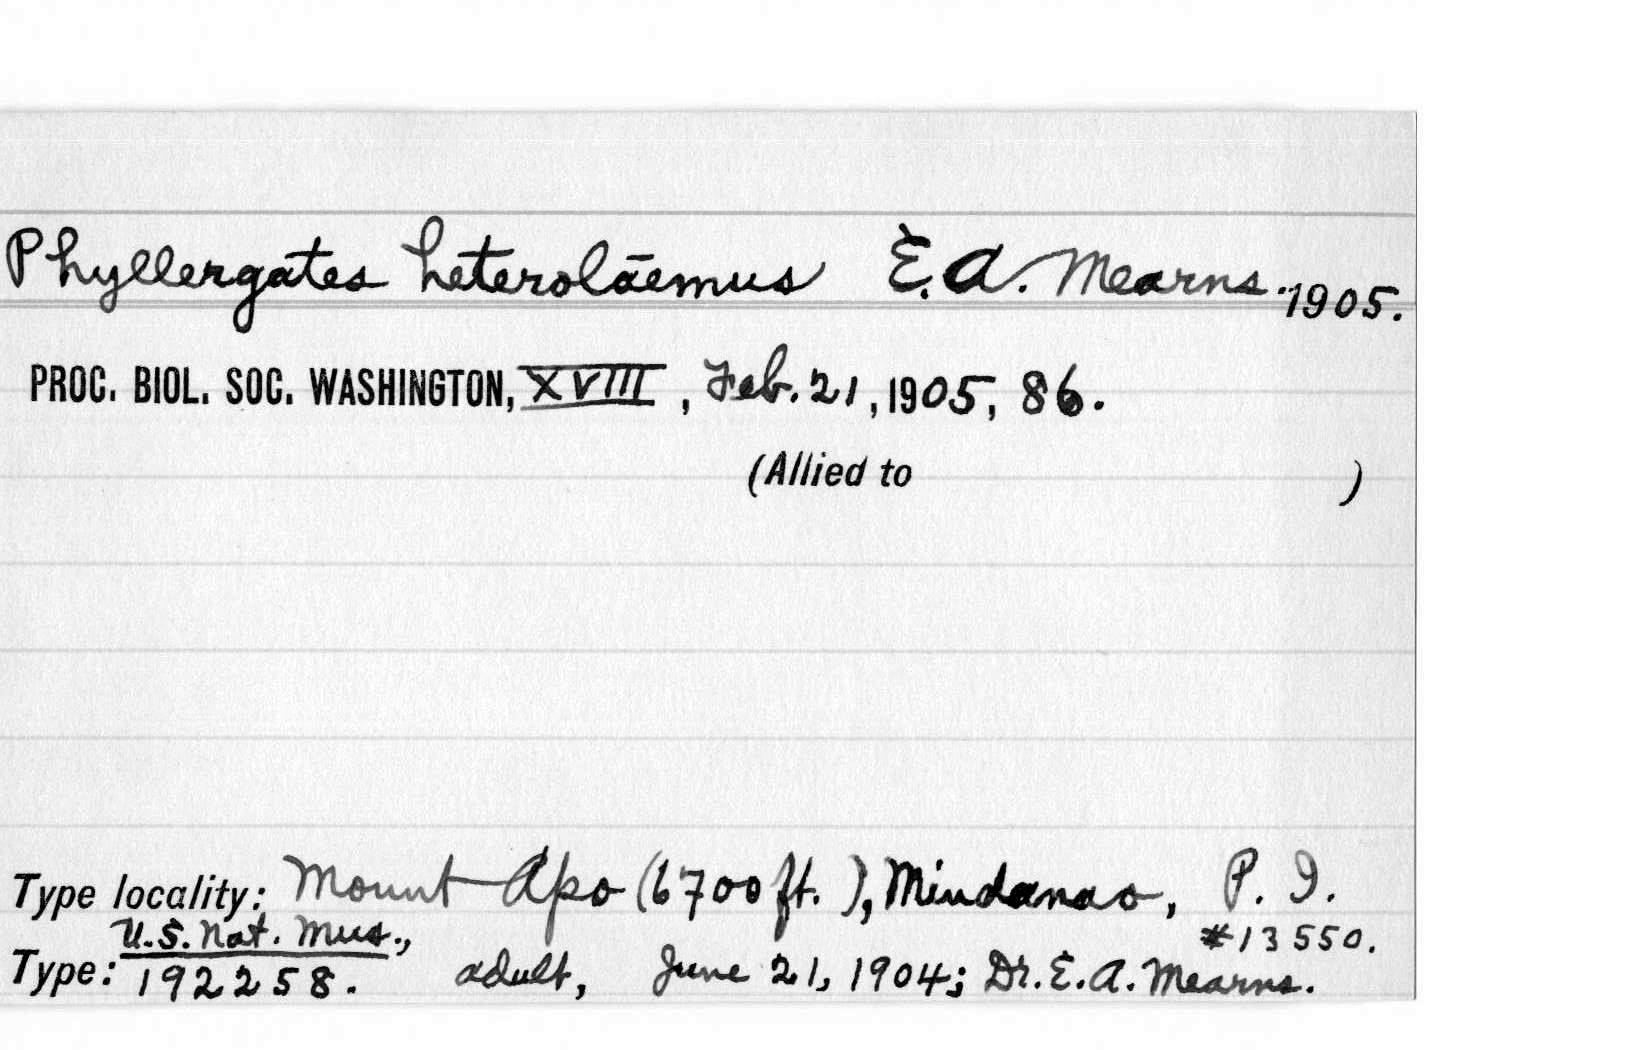 Phyllergates heterolāemus E. A. Mearns. 1905.
PROC. BIOL. SOC. WASHINGTON, XVIII, Feb. 21, 1905, 86.
(Allied to )
Type locality: Mount Apo (6700 ft.), Mindanao, P. I.
U.S. Nat. Mus., #13550.
Type: 192258. adult, June 21, 1904; Dr. E. A. Mearns.